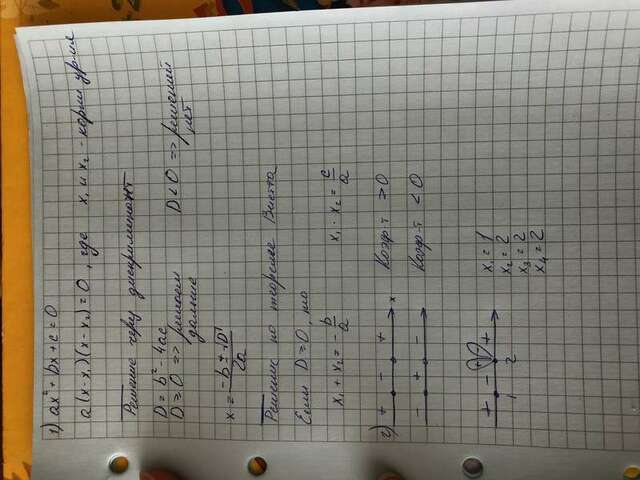 1) ax² + bx + c = 0
a(x-x₁)(x-x₂) = 0, где x₁ и x₂ - корни ур-ия
Решение через дискриминант
D = b² - 4ac
D ≥ 0 => решаем дальше
D < 0 => решений нет
x = (-b ± √D) / 2a
Решение по теореме Виета
Если D ≥ 0, то
x₁ + x₂ = - b/a
x₁ · x₂ = c/a
2) + - + x Коэф-т > 0
- + - Коэф-т < 0
+ - + - +
1 2
x₁ = 1
x₂ = 2
x₃ = 2
x₄ = 2